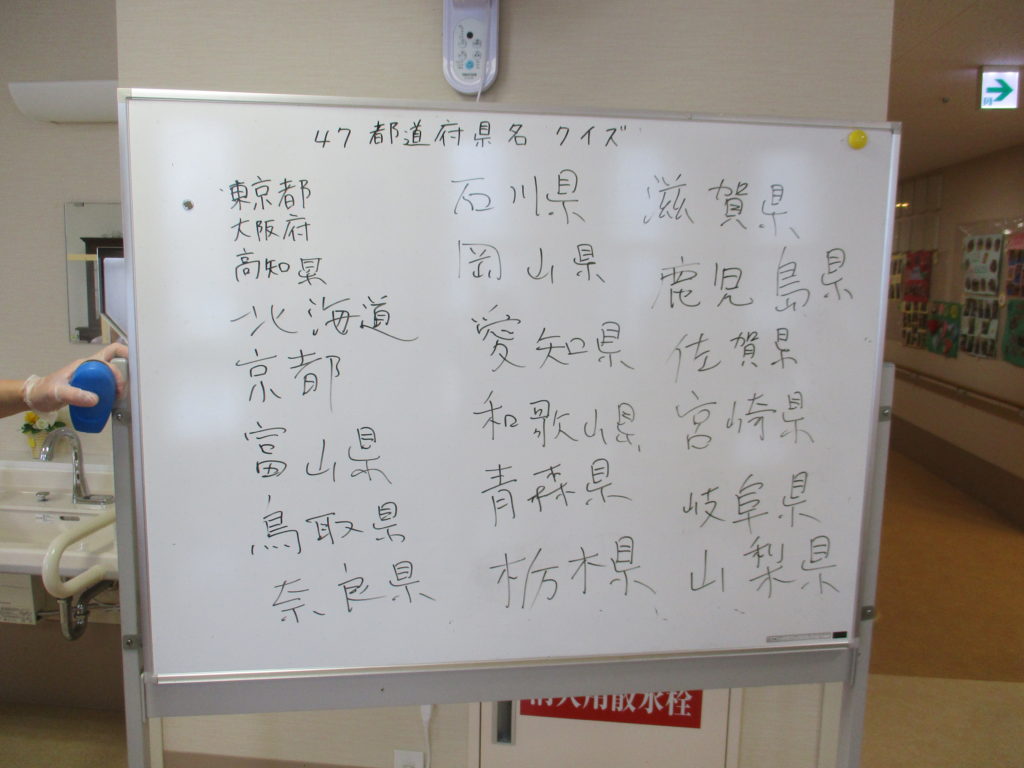 47都道府県名 クイズ
東京都
大阪府
高知県
北海道
京都
富山県
鳥取県
奈良県
石川県
岡山県
愛知県
和歌山県
青森県
栃木県
滋賀県
鹿児島県
佐賀県
宮崎県
岐阜県
山梨県
消火用散水栓